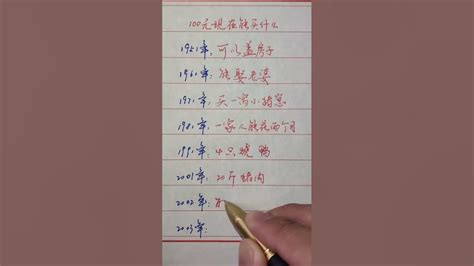 100元现在能买什么
1951年:可以盖房子
1961年:能娶老婆
1971年:买一窝小猪崽
1981年:一家人能花两个月
1991年:4只烧鸭
2001年:20斤猪肉
2002年:
2003年: